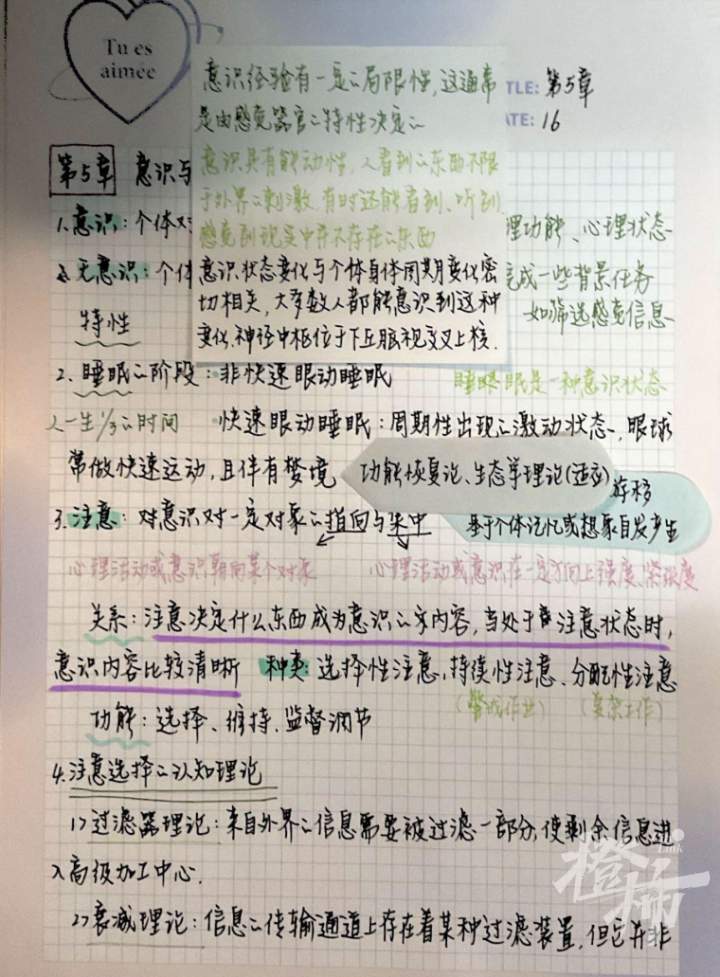 Tu es
aimée
TLE: 第5章
ATE: 16
意识经验有一定的局限性,这通常
是由感觉器官的特性决定的
意识具有能动性,人看到的东西不限
于外界的刺激,有时还能看到、听到
感觉到现实中并不存在的东西
意识状态变化与个体身体周期变化密
切相关,大多数人都能意识到这种
变化,神经中枢位于下丘脑视交叉上核.
第5章 意识与
1.意识:个体对 理功能、心理状态
2.无意识:个体 完成一些背景任务
特性 如筛选感觉信息
2.睡眠的阶段:非快速眼动睡眠 睡眠是一种意识状态
人一生1/3的时间 快速眼动睡眠:周期性出现的激动状态,眼球
常做快速运动,且伴有梦境 功能恢复论、生态学理论(适应)
3.注意:对意识对一定对象的指向与集中 基于个体记忆或想象自发产生
心理活动或意识朝向某个对象 心理活动或意识在一定方向上强度、紧张度
关系:注意决定什么东西成为意识的内容,当处于注意状态时,
意识内容比较清晰 种类:选择性注意、持续性注意、分配性注意
(警戒作业) (复杂工作)
功能:选择、维持、监督调节
4.注意选择的认知理论
1)过滤器理论:来自外界的信息需要被过滤一部分,使剩余信息进
入高级加工中心.
2)衰减理论:信息的传输通道上存在着某种过滤装置,但它并非
橙柿